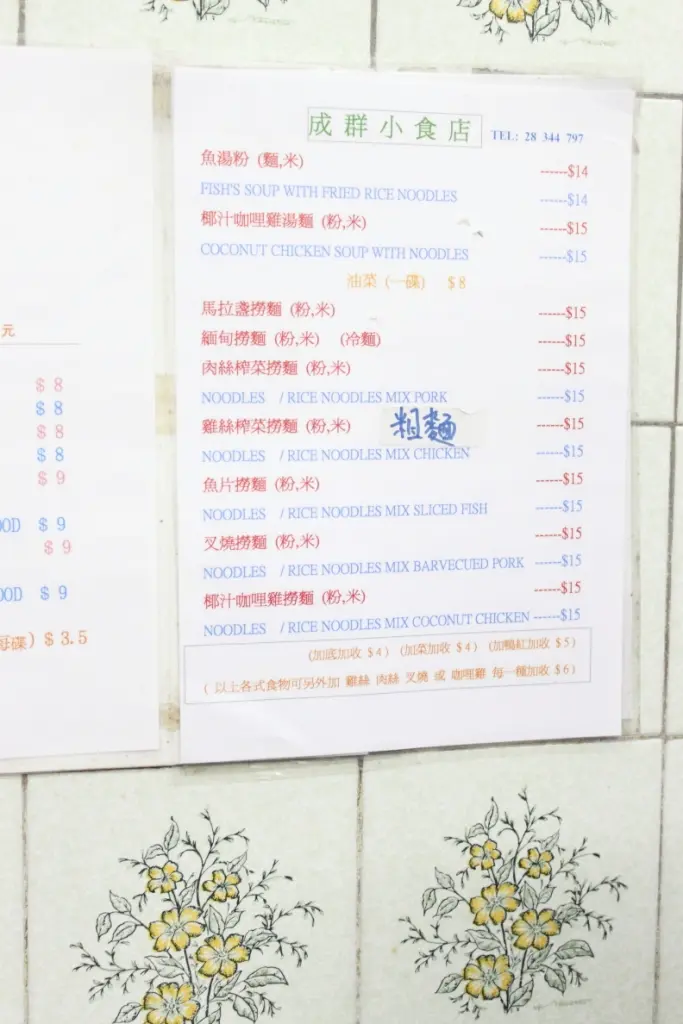 元
$ 8
$ 8
$ 8
$ 8
$ 9
OOD $ 9
$ 9
OOD $ 9
每碟) $ 3.5
成群小食店 TEL: 28 344 797
魚湯粉 (麵,米) ------$14
FISH'S SOUP WITH FRIED RICE NOODLES ------$14
椰汁咖哩雞湯麵 (粉,米) ------$15
COCONUT CHICKEN SOUP WITH NOODLES ------$15
油菜 (一碟) $ 8
馬拉盞撈麵 (粉,米) ------$15
緬甸撈麵 (粉,米) (冷麵) ------$15
肉絲榨菜撈麵 (粉,米) ------$15
NOODLES / RICE NOODLES MIX PORK ------$15
雞絲榨菜撈麵 (粉,米) 粗麵 ------$15
NOODLES / RICE NOODLES MIX CHICKEN ------$15
魚片撈麵 (粉,米) ------$15
NOODLES / RICE NOODLES MIX SLICED FISH ------$15
叉燒撈麵 (粉,米) ------$15
NOODLES / RICE NOODLES MIX BARVECUED PORK ------$15
椰汁咖哩雞撈麵 (粉,米) ------$15
NOODLES / RICE NOODLES MIX COCONUT CHICKEN ------$15
(加底加收 $ 4) (加菜加收 $ 4) (加鴨紅加收 $ 5)
( 以上各式食物可另外加 雞絲 肉絲 叉燒 或 咖哩雞 每一種加收 $ 6 )